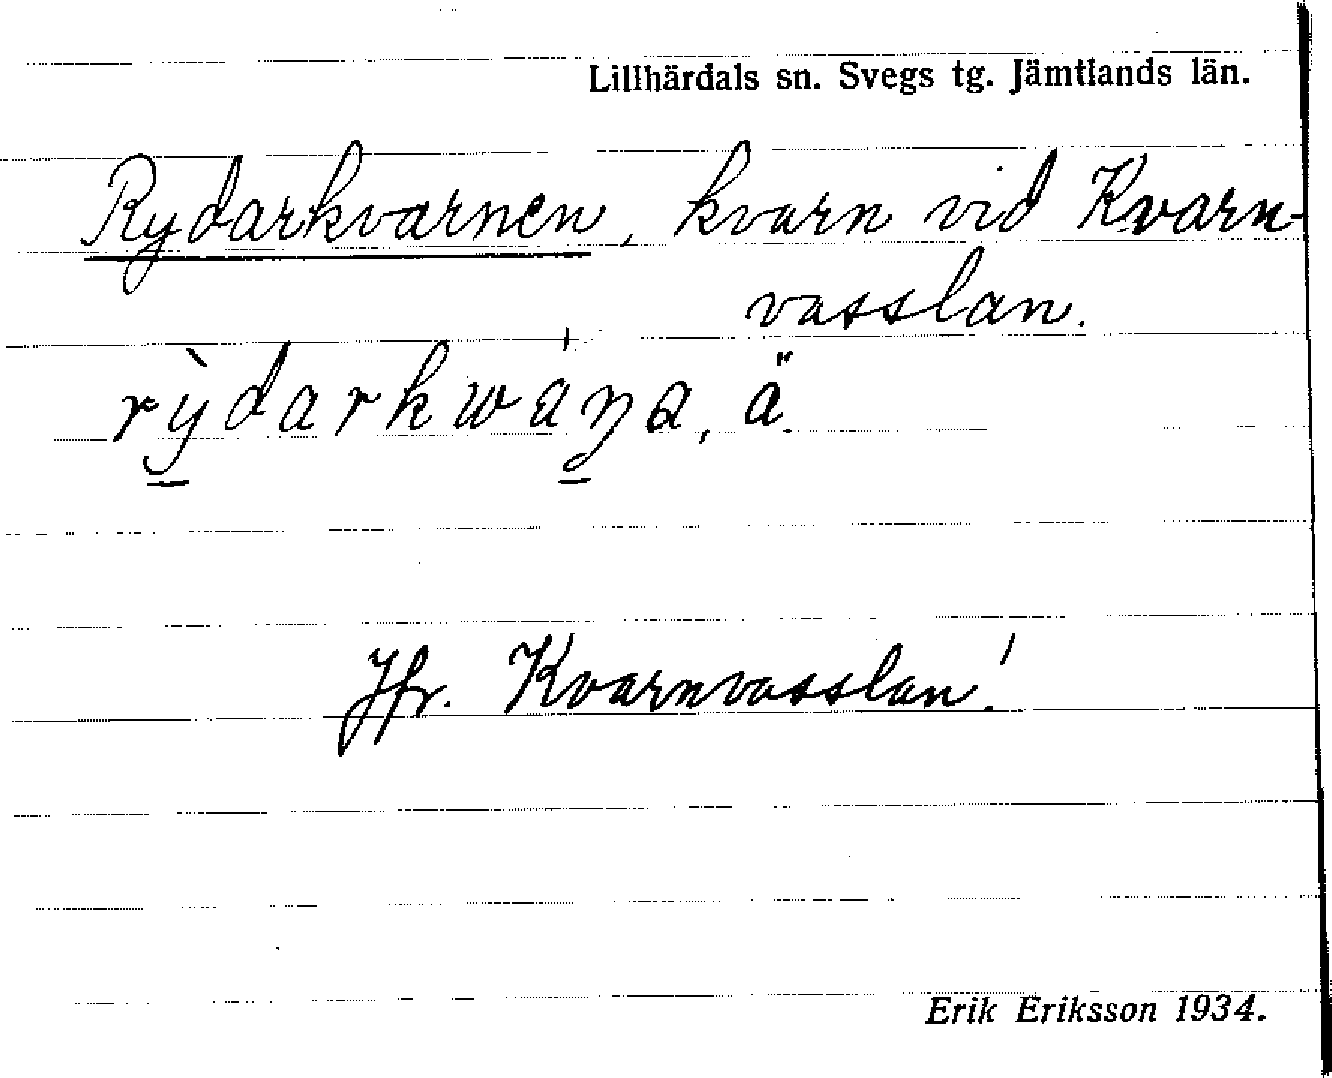 Lillhärdals sn. Svegs tg. Jämtlands län.
Rydarkvarnen, kvarn vid Kvarn-
vasslan.
rỳdarkwáŋa, ä.
Jfr. Kvarnvasslan!
Erik Eriksson 1934.